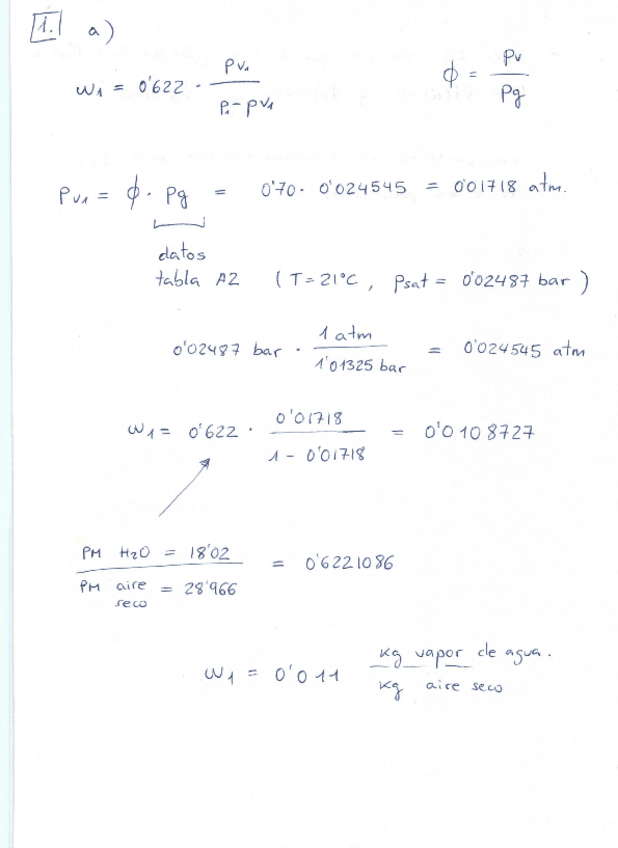 1. a)
ω1 = 0'622 · Pv1 / (P1 - Pv1)    ϕ = Pv / Pg
Pv1 = ϕ · Pg = 0'70 · 0'024545 = 0'01718 atm.
datos
tabla A2 (T = 21°C, Psat = 0'02487 bar)
0'02487 bar · 1 atm / 1'01325 bar = 0'024545 atm
ω1 = 0'622 · 0'01718 / (1 - 0'01718) = 0'0108727
PM H2O = 18'02 / PM aire seco = 28'966 = 0'6221086
ω1 = 0'011 kg vapor de agua. / kg aire seco